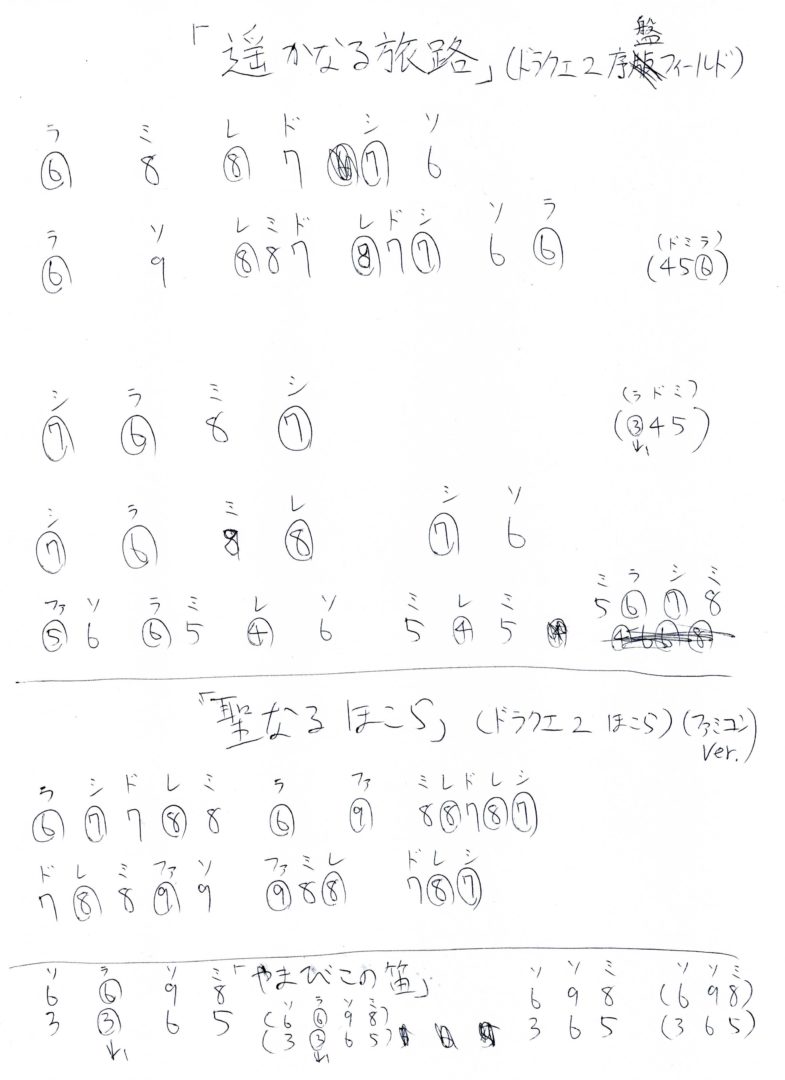 「遥かなる旅路」(ドラクエ2 序盤フィールド)
ラ ミ レ ド シ ソ
⑥ 8 ⑧ 7 ⑦ 6
ラ ソ レ ミ ド レ ド シ ソ ラ (ドミラ)
⑥ 9 ⑧ 8 7 ⑧ 7 ⑦ 6 ⑥ (45⑥)
シ ラ ミ シ (ラドミ)
⑦ ⑥ 8 ⑦ (③45)
↓
シ ラ ミ レ シ ソ
⑦ ⑥ 8 ⑧ ⑦ 6
ファ ソ ラ ミ レ ソ ミ レ ミ ミ ラ シ ミ
⑤ 6 ⑥ 5 ④ 6 5 ④ 5 5 ⑥ ⑦ 8
「聖なるほこら」(ドラクエ2 ほこら)(ファミコンVer.)
ラ シ ド レ ミ ラ ファ ミ レ ド レ シ
⑥ ⑦ 7 ⑧ 8 ⑥ ⑨ 8 ⑧ 7 ⑧ ⑦
ド レ ミ ファ ソ ファ ミ レ ド レ シ
7 ⑧ 8 ⑨ 9 ⑨ 8 ⑧ 7 ⑧ ⑦
「やまびこの笛」
ソ ラ ソ ミ (ソ ラ ソ ミ) ソ ソ ミ (ソ ソ ミ)
6 ⑥ 9 8 (6 ⑥ 9 8) 6 9 8 (6 9 8)
3 ③ 6 5 (3 ③ 6 5) 3 6 5 (3 6 5)
↓ ↓